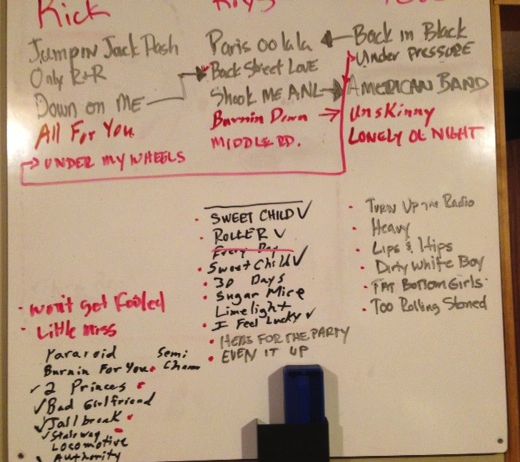 Kick
Jumpin Jack Flash
Only R+R
Down on ME
All For You
UNDER MY WHEELS
Paris oo lala
Back Street Love
Shook ME ANL
Burnin Down
MIDDLE RD.
Back in Black
Under PRESSURE
AMERICAN BAND
Unskinny
LONELY OL NIGHT
won't get Fooled
Little miss
Paranoid
Burnin For You
2 Princes
Bad Girlfriend
Jailbreak
Stairway
Locomotive
Authority
Semi
Charm
SWEET CHILD
ROLLER
Every Day
Sweet Child
30 Days
Sugar Mice
Limelight
I Feel Lucky
HERE FOR THE PARTY
EVEN IT UP
TURN UP THE Radio
Heavy
Lips & Hips
Dirty White Boy
FAT BOTTOM GIRLS
Too Rolling Stoned